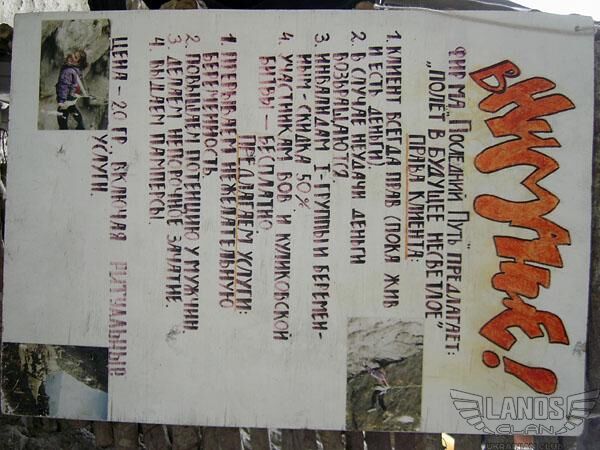 ВНИМАНИЕ!
ФИРМА „Последний Путь" ПРЕДЛАГАЕТ:
„ПОЛЁТ В БУДУЩЕЕ НЕСВЕТЛОЕ"
ПРАВА КЛИЕНТА:
1. КЛИЕНТ ВСЕГДА ПРАВ (ПОКА ЖИВ
И ЕСТЬ ДЕНЬГИ).
2. В СЛУЧАЕ НЕУДАЧИ ДЕНЬГИ
ВОЗВРАЩАЮТСЯ.
3. ИНВАЛИДАМ I-ГРУППЫ И БЕРЕМЕН-
НЫМ-СКИДКА 50%.
4. УЧАСТНИКАМ ВОВ И КУЛИКОВСКОЙ
БИТВЫ — БЕСПЛАТНО.
ПРЕДЛАГАЕМ УСЛУГИ:
1. ПРЕРЫВАЕМ НЕЖЕЛАТЕЛЬНУЮ
БЕРЕМЕННОСТЬ.
2. ПОВЫШАЕМ ПОТЕНЦИЮ У МУЖЧИН.
3. ДЕЛАЕМ НЕПОРОЧНОЕ ЗАЧАТИЕ.
4. ВЫДАЕМ ПАМПЕРСЫ.
ЦЕНА - 20 ГР. ВКЛЮЧАЯ РИТУАЛЬНЫЕ
УСЛУГИ.
LANOS
CLAN
UKRAINIAN CLUB